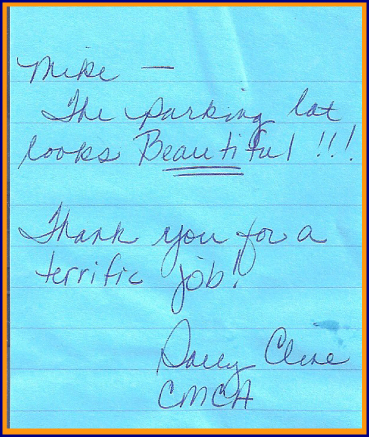 Mike —
The parking lot
looks Beautiful !!!
Thank you for a
terrific job!
Cline
CMCA